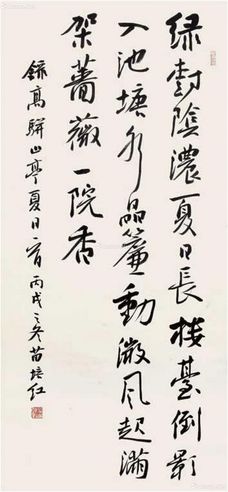 绿樹陰濃夏日長楼臺倒影
入池塘水晶簾動微风起滿
架薔薇一院香
錄高駢山亭夏日一首丙戌之冬苗培红